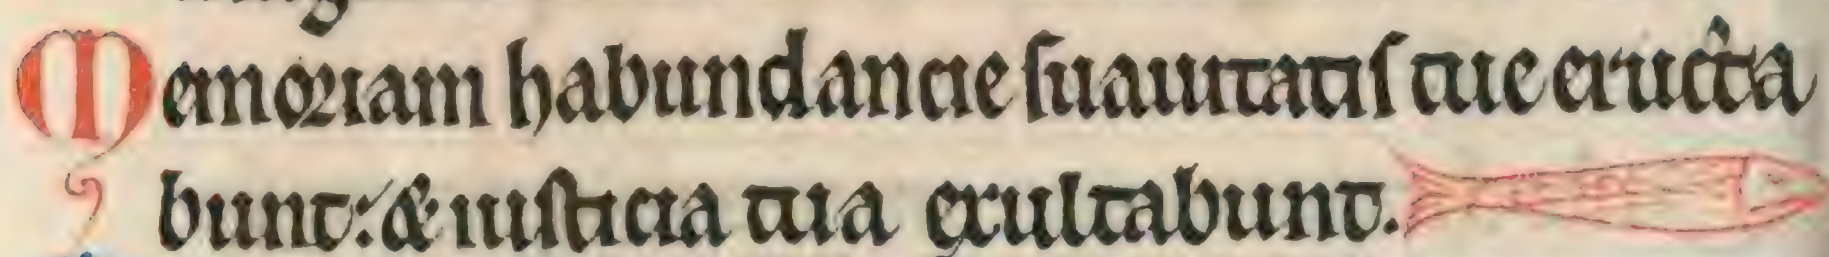 Memoriam habundancie suauitatis tue eructa
bunt: & iusticia tua exultabunt.